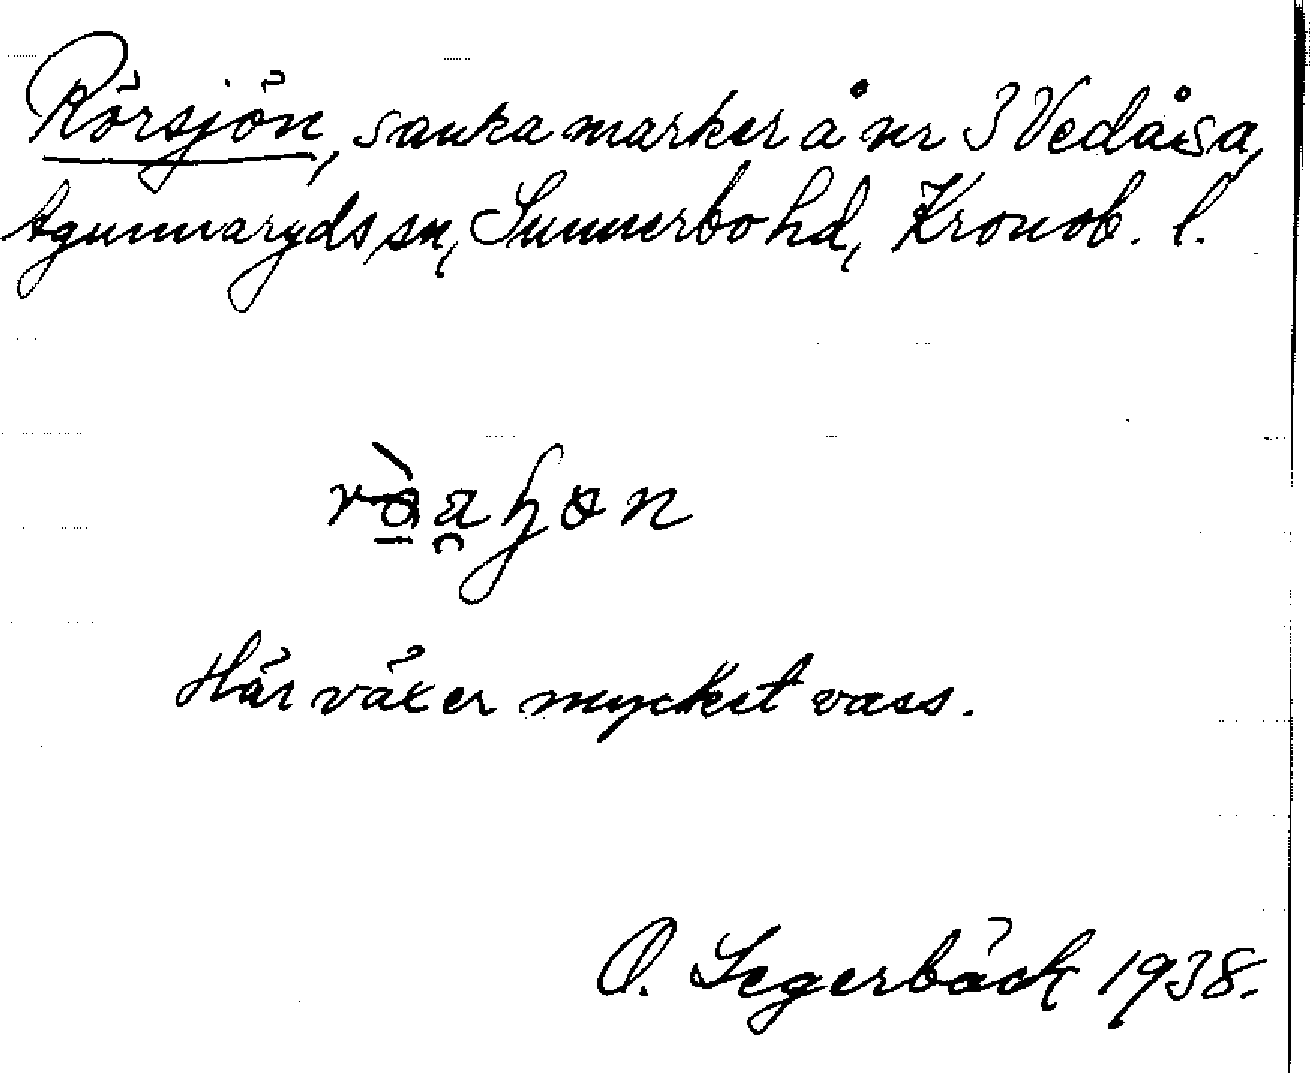 Rörsjön, sanka marker å nr 3 Vedåsa,
Agunnaryds sn, Sunnerbo hd, Kronob. l.
Här växer mycket vass.
O. Segerbäck 1938.